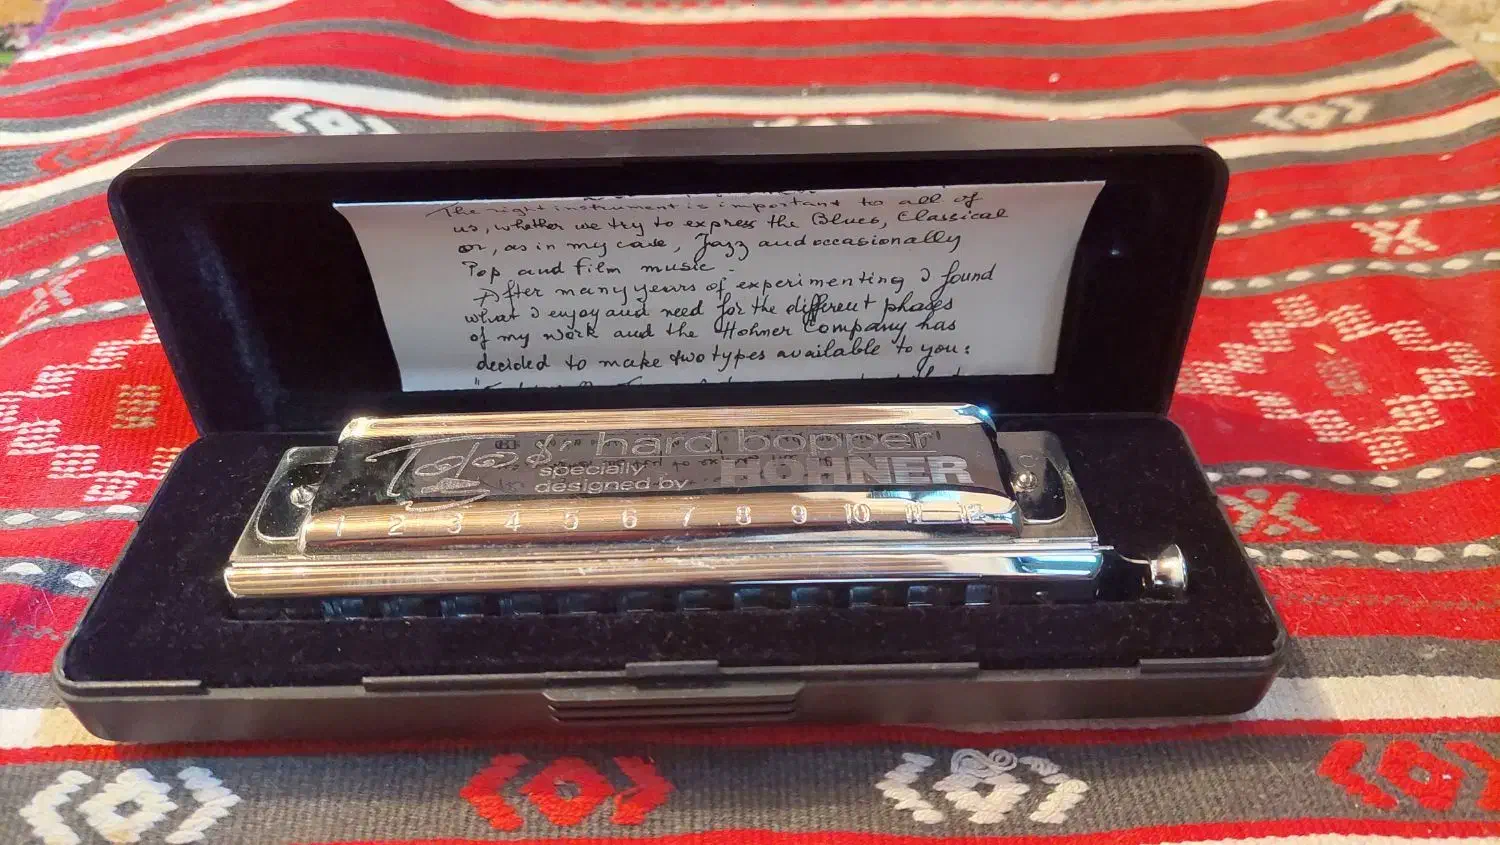 The right instrument is important to all of
us, whether we try to express the Blues, Classical
or, as in my case, Jazz and occasionally
Pop and film music.
After many years of experimenting I found
what I enjoy and need for the different phases
of my work and the Hohner Company has
decided to make two types available to you:
Toots' hard bopper
specially
designed by HOHNER
C
1 2 3 4 5 6 7 8 9 10 11 12